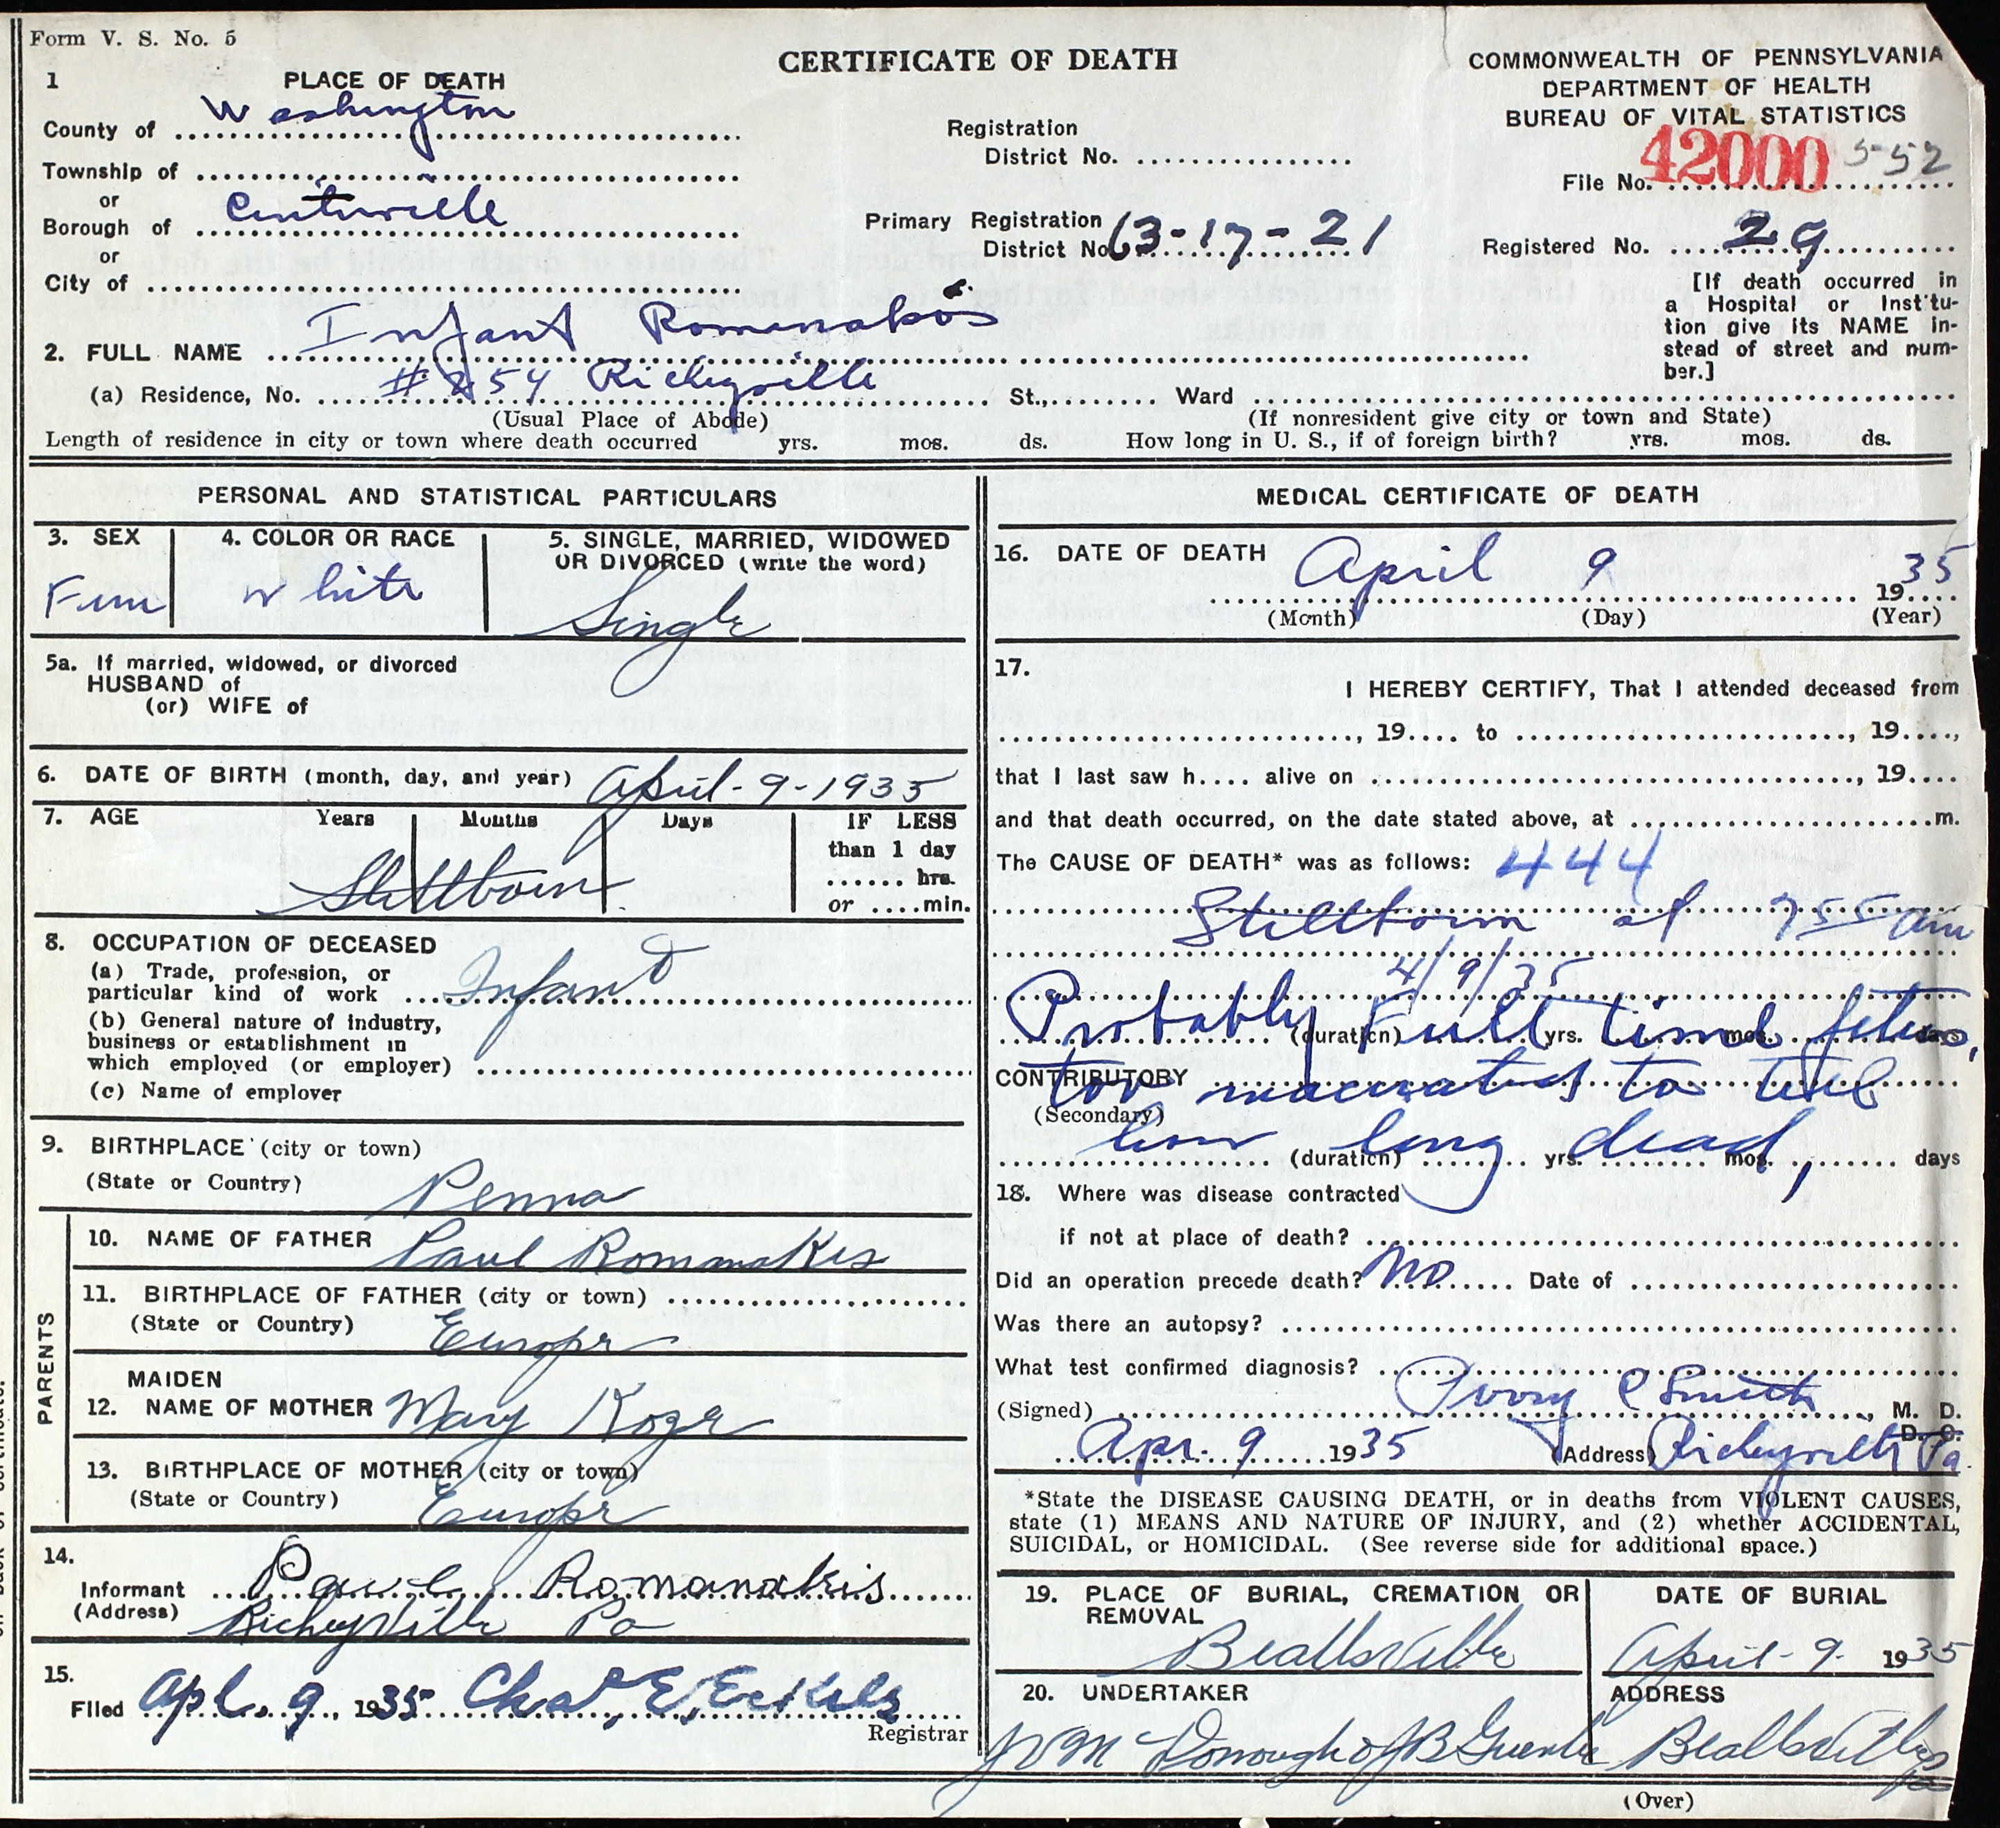 Form V. S. No. 5
CERTIFICATE OF DEATH
COMMONWEALTH OF PENNSYLVANIA
DEPARTMENT OF HEALTH
BUREAU OF VITAL STATISTICS
1 PLACE OF DEATH
County of Washington
Township of
or
Borough of Centerville
or
City of
Registration
District No.
Primary Registration
District No. 63-17-21
File No. 42000 5-52
Registered No. 29
[If death occurred in
a Hospital or Institu-
tion give its NAME in-
stead of street and num-
ber.]
2. FULL NAME Infant Romanakos
(a) Residence, No. #254 Richeyville St., Ward
(Usual Place of Abode) (If nonresident give city or town and State)
Length of residence in city or town where death occurred yrs. mos. ds. How long in U. S., if of foreign birth? yrs. mos. ds.
PERSONAL AND STATISTICAL PARTICULARS
3. SEX 4. COLOR OR RACE 5. SINGLE, MARRIED, WIDOWED
OR DIVORCED (write the word)
Fem White Single
5a. If married, widowed, or divorced
HUSBAND of
(or) WIFE of
6. DATE OF BIRTH (month, day, and year) April-9-1935
7. AGE Years Months Days IF LESS
than 1 day
hrs.
or ....min.
Stillborn
8. OCCUPATION OF DECEASED
(a) Trade, profession, or
particular kind of work Infant
(b) General nature of industry,
business or establishment in
which employed (or employer)
(c) Name of employer
9. BIRTHPLACE (city or town)
(State or Country) Penna
PARENTS
10. NAME OF FATHER Paul Romanakis
11. BIRTHPLACE OF FATHER (city or town)
(State or Country) Europe
MAIDEN
12. NAME OF MOTHER Mary Koze
13. BIRTHPLACE OF MOTHER (city or town)
(State or Country) Europe
14.
Informant Paul Romanakis
(Address) Richeyville Pa
15.
Filed Apl. 9, 1935 Chas. E. Eckels
Registrar
MEDICAL CERTIFICATE OF DEATH
16. DATE OF DEATH April 9 1935
(Month) (Day) (Year)
17.
I HEREBY CERTIFY, That I attended deceased from
, 19.... to , 19....,
that I last saw h.... alive on , 19....
and that death occurred, on the date stated above, at m.
The CAUSE OF DEATH* was as follows: 444
Stillborn at 755 am
4/9/35
Probably Full time fetus,
(duration) yrs. mos. days
CONTRIBUTORY too macerated to tell
(Secondary)
how long dead,
(duration) yrs. mos. days
18. Where was disease contracted
if not at place of death?
Did an operation precede death? No Date of
Was there an autopsy?
What test confirmed diagnosis?
(Signed) P Smith, M. D.
D. O.
Apr. 9 1935 (Address) Richeyville Pa
*State the DISEASE CAUSING DEATH, or in deaths from VIOLENT CAUSES,
state (1) MEANS AND NATURE OF INJURY, and (2) whether ACCIDENTAL,
SUICIDAL, or HOMICIDAL. (See reverse side for additional space.)
19. PLACE OF BURIAL, CREMATION OR
REMOVAL
Beallsville
DATE OF BURIAL
April-9- 1935
20. UNDERTAKER
ADDRESS
McDonough of J B Beallsville Pa
(Over)